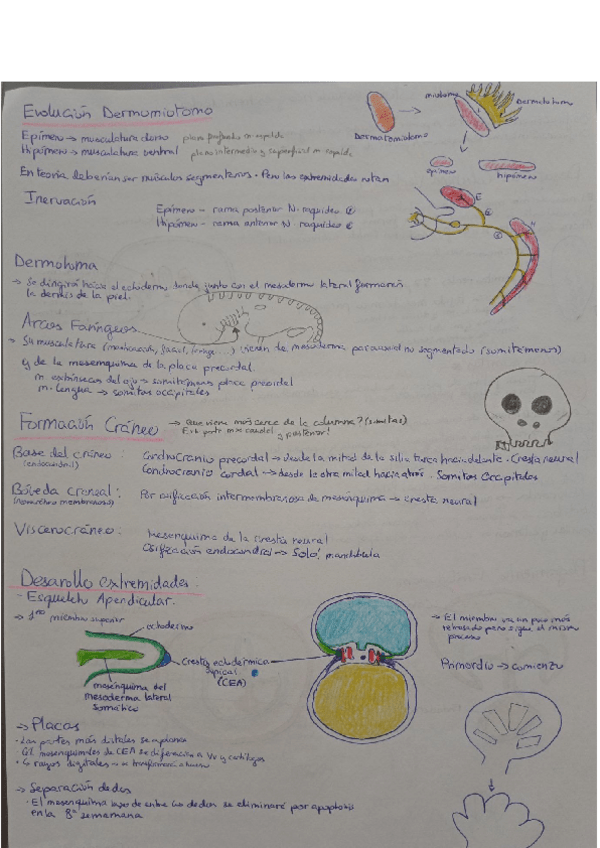 Evolución Dermomiotomo
miotomo
Dermatomo
Dermatomiotomo
Epímero → musculatura dorso plano profundo m. espalda
Hipómero → musculatura ventral plano intermedio y superficial m espalda
epímero
hipómero
En teoría deberían ser músculos segmentarios. Pero las extremidades rotan
Inervación
Epímero - rama posterior N. raquídeo
Hipómero - rama anterior N. raquídeo
Dermatoma
→ Se dirigirá hacia el ectodermo donde junto con el mesodermo lateral formarán
la dermis de la piel.
Arcos Faríngeos
→ Su musculatura (masticación, facial, laringe...) vienen de mesodermo paraxial no segmentado (somitómeros)
y de la mesénquima de la placa precordal.
m. extrínsecos del ojo → somitómeras placa precordal
m. Lengua → somitas occipitales
Formación Cráneo
→ Que viene más cerca de la columna? (somitas)
Es la parte más caudal
y posterior!
Base del cráneo:
(endocondral)
Condrocráneo precordal → desde la mitad de la silla turca hacia delante. Cresta neural
Condrocráneo cordal → desde la otra mitad hacia atrás. Somitas Occipitales
Bóveda craneal:
Por osificación intermembranosa de mesénquima → cresta neural
Viscerocráneo:
Mesénquima de la cresta neural
Osificación endocondral → Solo! mandíbula
Desarollo extremidades:
- Esqueleto Apendicular.
→ 1º miembro superior
ectodermo
cresta ectodérmica
apical
(CEA)
mesénquima del
mesodermo lateral
somático
→ El miembro va un poco más
retrasado pero sigue el mismo
proceso
Primordio → comienzo
→ Placas
· Las partes más distales se aplanan
· Cél mesenquimales de CEA se diferencian a VV y cartílagos
rayos digitales
→ Separación dedos
· El mesénquima laxo de entre los dedos se eliminará por apoptosis
en la 8ª semana